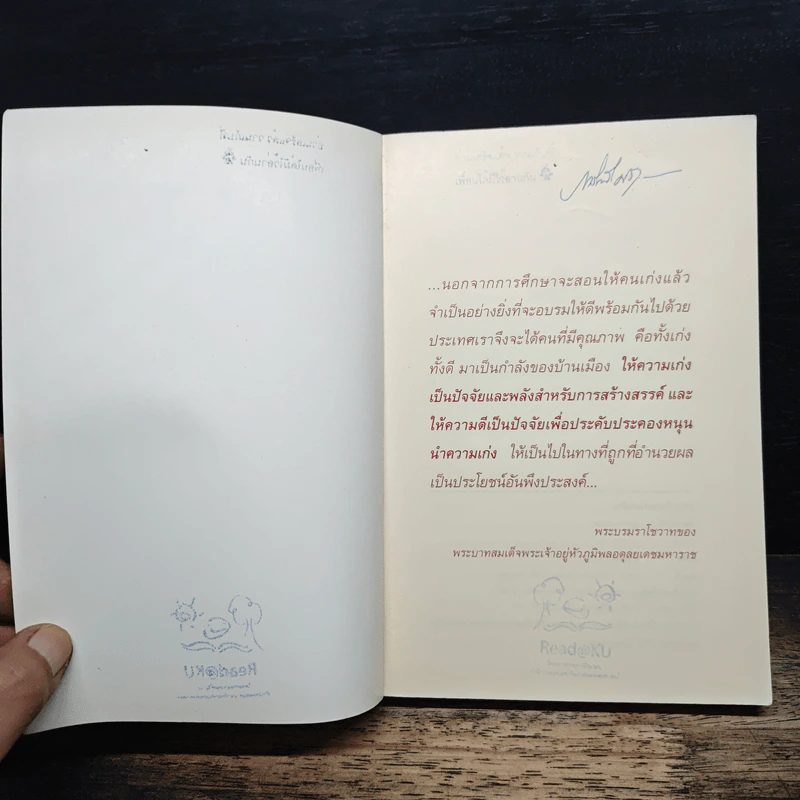 ...นอกจากการศึกษาจะสอนให้คนเก่งแล้ว
จำเป็นอย่างยิ่งที่จะอบรมให้ดีพร้อมกันไปด้วย
ประเทศเราจึงจะได้คนที่มีคุณภาพ คือทั้งเก่ง
ทั้งดี มาเป็นกำลังของบ้านเมือง ให้ความเก่ง
เป็นปัจจัยและพลังสำหรับการสร้างสรรค์ และ
ให้ความดีเป็นปัจจัยเพื่อประคับประคองหนุน
นำความเก่ง ให้เป็นไปในทางที่ถูกที่อำนวยผล
เป็นประโยชน์อันพึงประสงค์...
พระบรมราโชวาทของ
พระบาทสมเด็จพระเจ้าอยู่หัวภูมิพลอดุลยเดชมหาราช
Read@KU
Read@KU